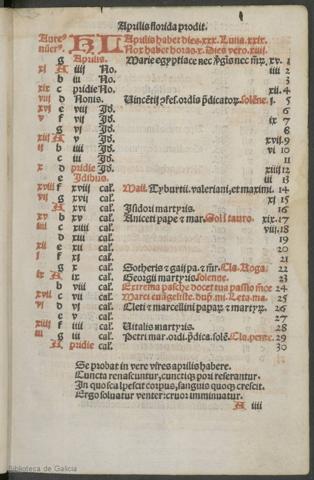 Aprilis florida prodit.
Aure⁹ KL Aprilis habet dies.xxx. Luna.xxix.
nūer⁹. Nox habet horas.x. Dies vero.xiiij.
g Aprilis. Marie egyptiace nec v̄gīs nec m̄r̄. xv. 1
xj A iiij No. iiij 2
b iij No. 3
xix c pridie No. xij. 4
viij d Nonis. Vincētij ꝯfes. ordis p̄dicatoꝝ. solēne. j. 5
e viij Id. 6
f vij Id. 7
g vj Id. 8
A v Id. xvij. 9
b iiij Id. vj 10
c iij Id. 11
d pridie Id. 12
e Idibus. iij 13
xviij f xviij cal. Maij. Tyburtij. valeriani, et maximi. 14
vij g xvij cal. xj 15
A xvj cal. Isidori martyris. 16
xv b xv cal. Aniceti pape ⁊ mar. Sol ī tauro. xix. 17
iiij c xiiij cal. viij. 18
d xiij cal. 19
xij e xij cal. 20
f xj cal. 21
g x cal. Sotheris ⁊ gaij pa. ⁊ m̄r. Cla. Roga. 22
ix A ix cal. Georgij martyris. solenne. 23
b viij cal. Extrema pasche docet tua passio mrce 24
xvij c vij cal. Marci euāgeliste. dup. mi. Leta. ma. 25
vj d vj cal. Cleti ⁊ marcellini papaꝝ ⁊ martyꝝ. 26
e v cal. 27
xiiij f iiij cal. Vitalis martyris. 28
iij g iij cal. Petri mar. ordi. p̄dica. solē. Cla. pente. 29
A pridie cal. 30
Se probat in vere vires aprilis habere.
Cuncta renascuntur, cunctiqꝫ pori reserantur.
In quo scalpescit corpus, sanguis quoqꝫ crescit.
Ergo soluatur venter: cruor imminuatur.
A iiij
Biblioteca de Galicia